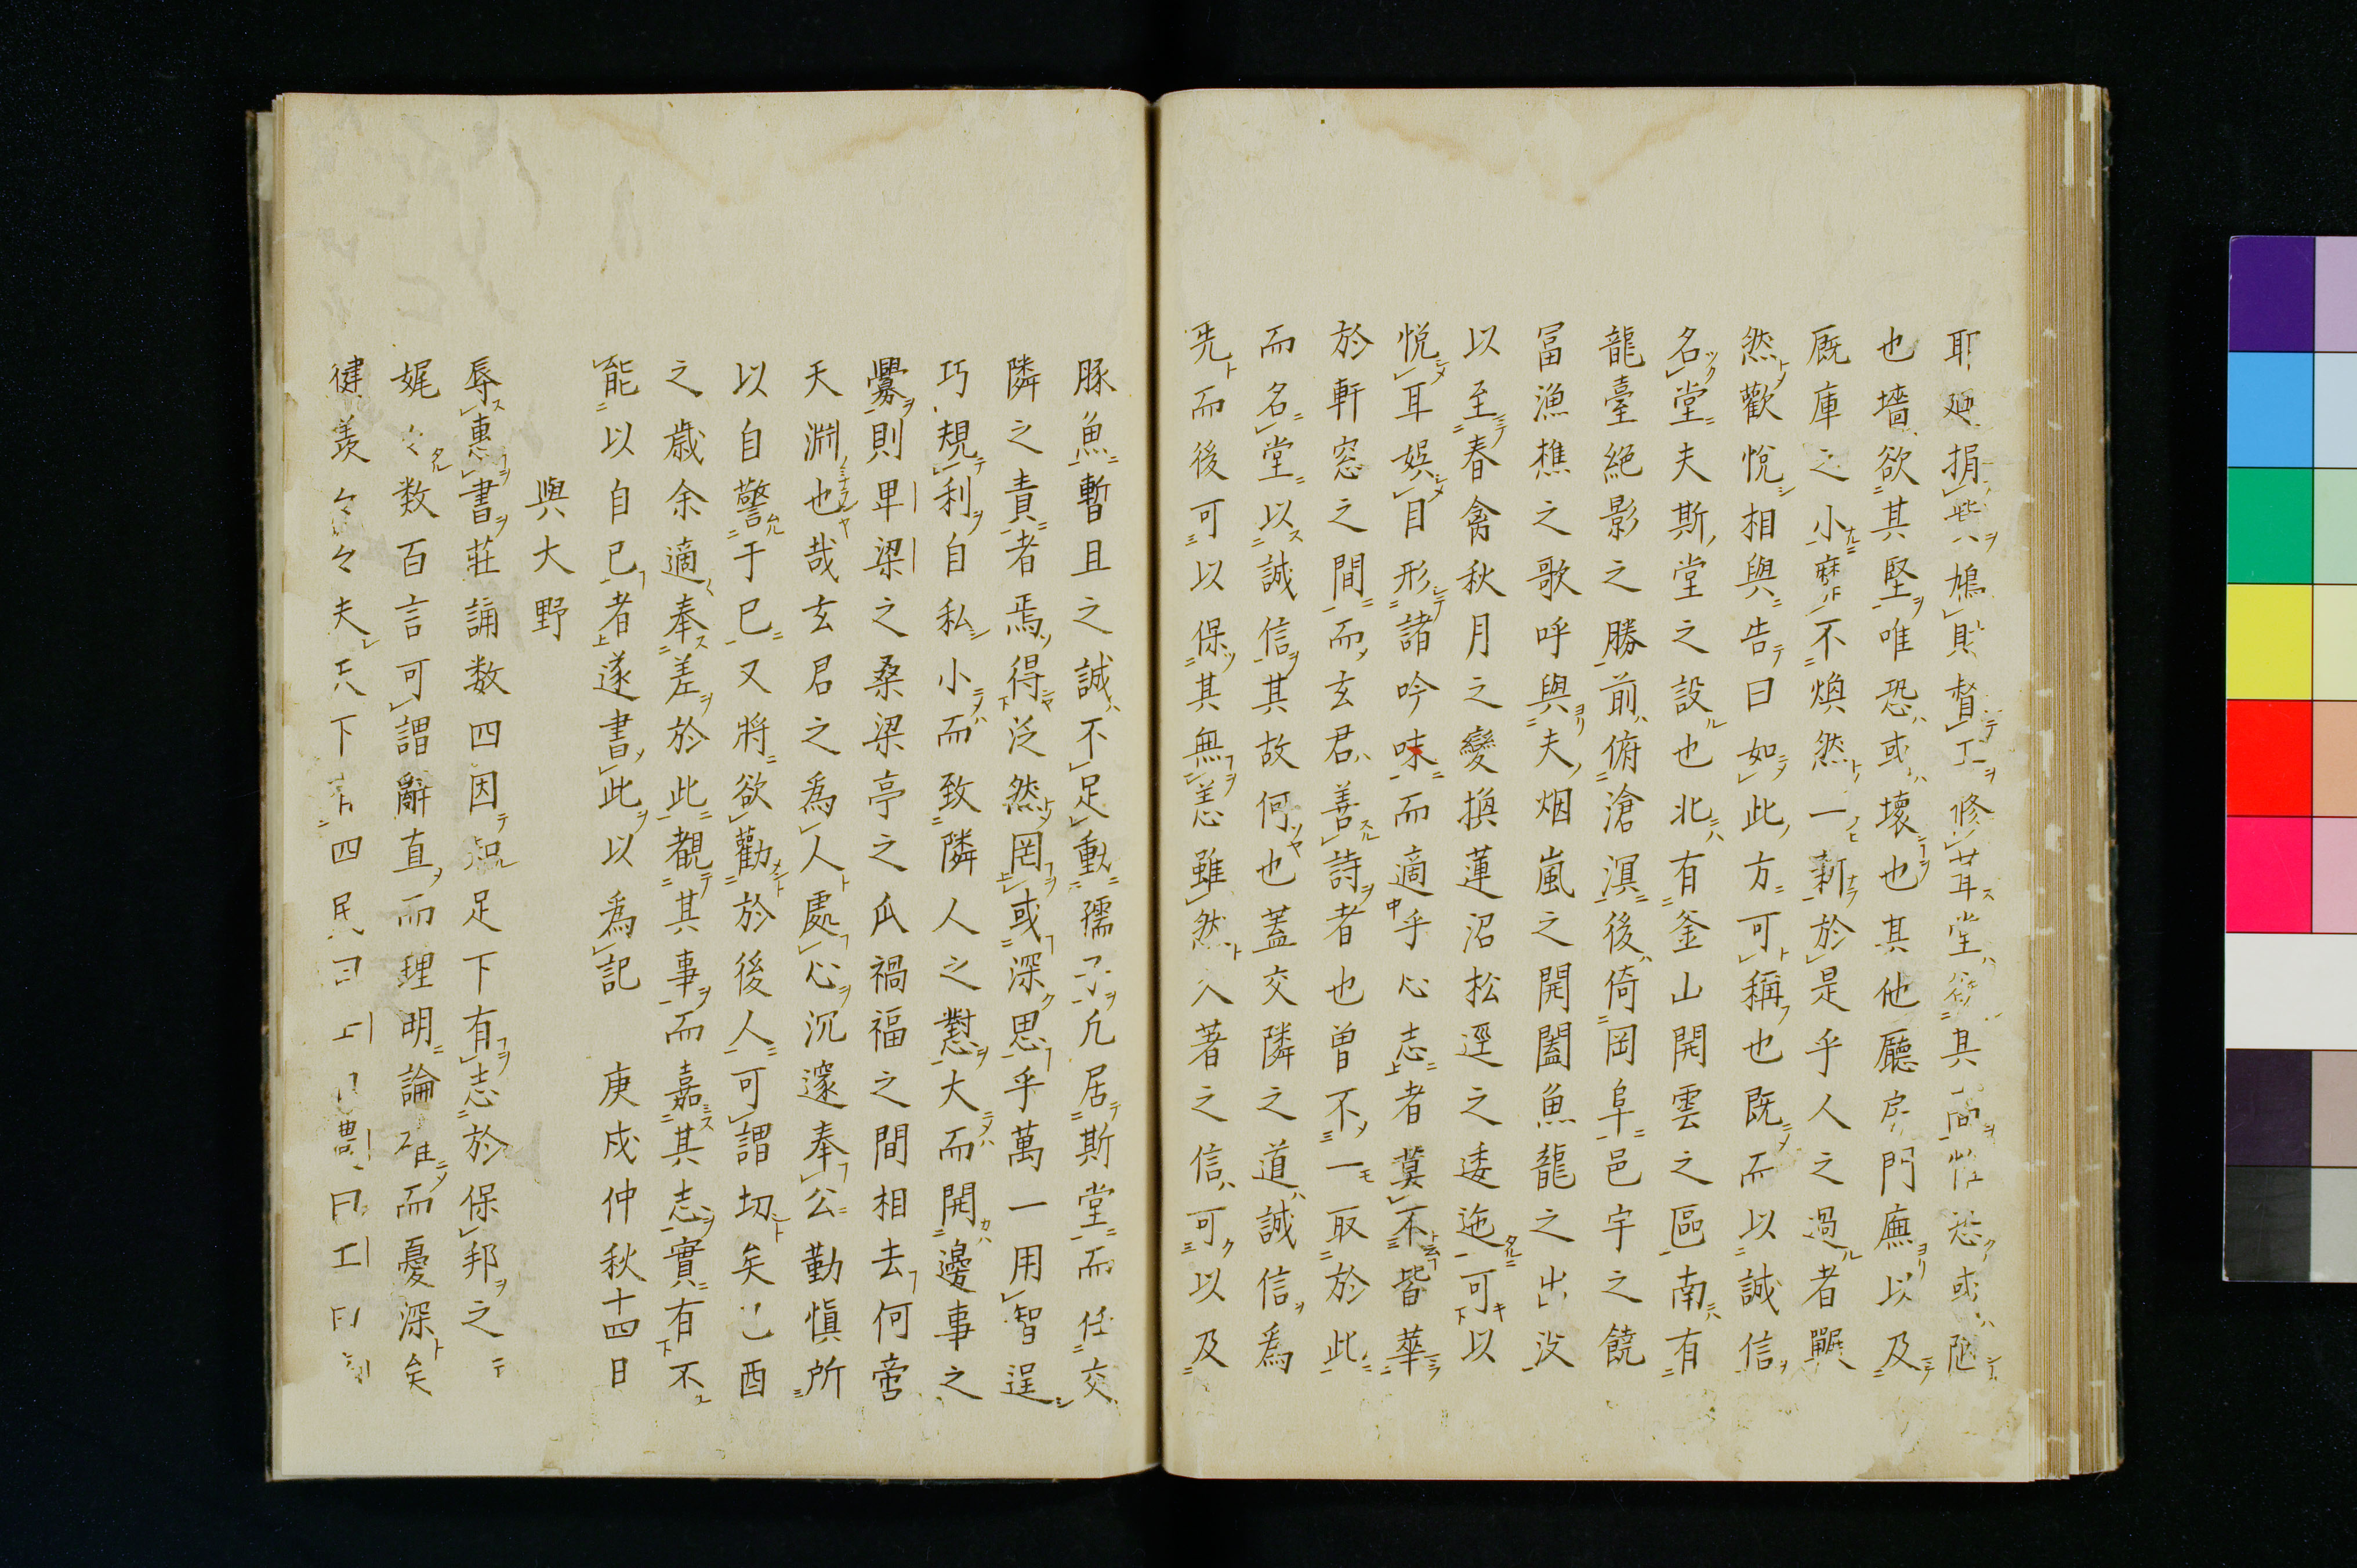 耶廼捐賦鳩財督工修茸堂欲其固惟恐或陋
也墻欲其堅唯恐或壞也其他廳房門廡以及
厩庫之小靡不煥然一新於是乎人之過者囅
然歡悅相與告曰如此方可稱也既而以誠信
名堂夫斯堂之設也北有釜山開雲之區南有
龍臺絕影之勝前俯滄溟後倚岡阜邑宇之饒
冨漁樵之歌呼與夫烟嵐之開闔魚龍之出沒
以至春禽秋月之變換蓮沼松逕之逶迤可以
悅耳娯目形諸吟味而適乎心志者糞不皆華
於軒窓之間而玄君善詩者也曽不一取於此
而名堂以誠信其故何也蓋交隣之道誠信爲
先而後可以保其無恙雖然入著之信可以及
豚魚暫且之誠不足動孺子凡居斯堂而任交
隣之責者焉得泛然罔或深思乎萬一用智逞
巧規利自私小而致隣人之懟大而開邊事之
釁則卑梁之桑梁亭之瓜禍福之間相去何啻
天淵也哉玄君之爲人處心沉邃奉公勤愼所
以自警于已又將欲勸於後人可謂切矣己酉
之歳余適奉差於此覩其事而嘉其志實有不
能以自已者遂書此以爲記　庚戌仲秋十四日
與大野
辱惠書莊誦数四因足下有志於保邦之
娓々数百言可謂辭直而理明論確而憂深矣
健羨々々夫天下有四民曰士曰農曰工曰